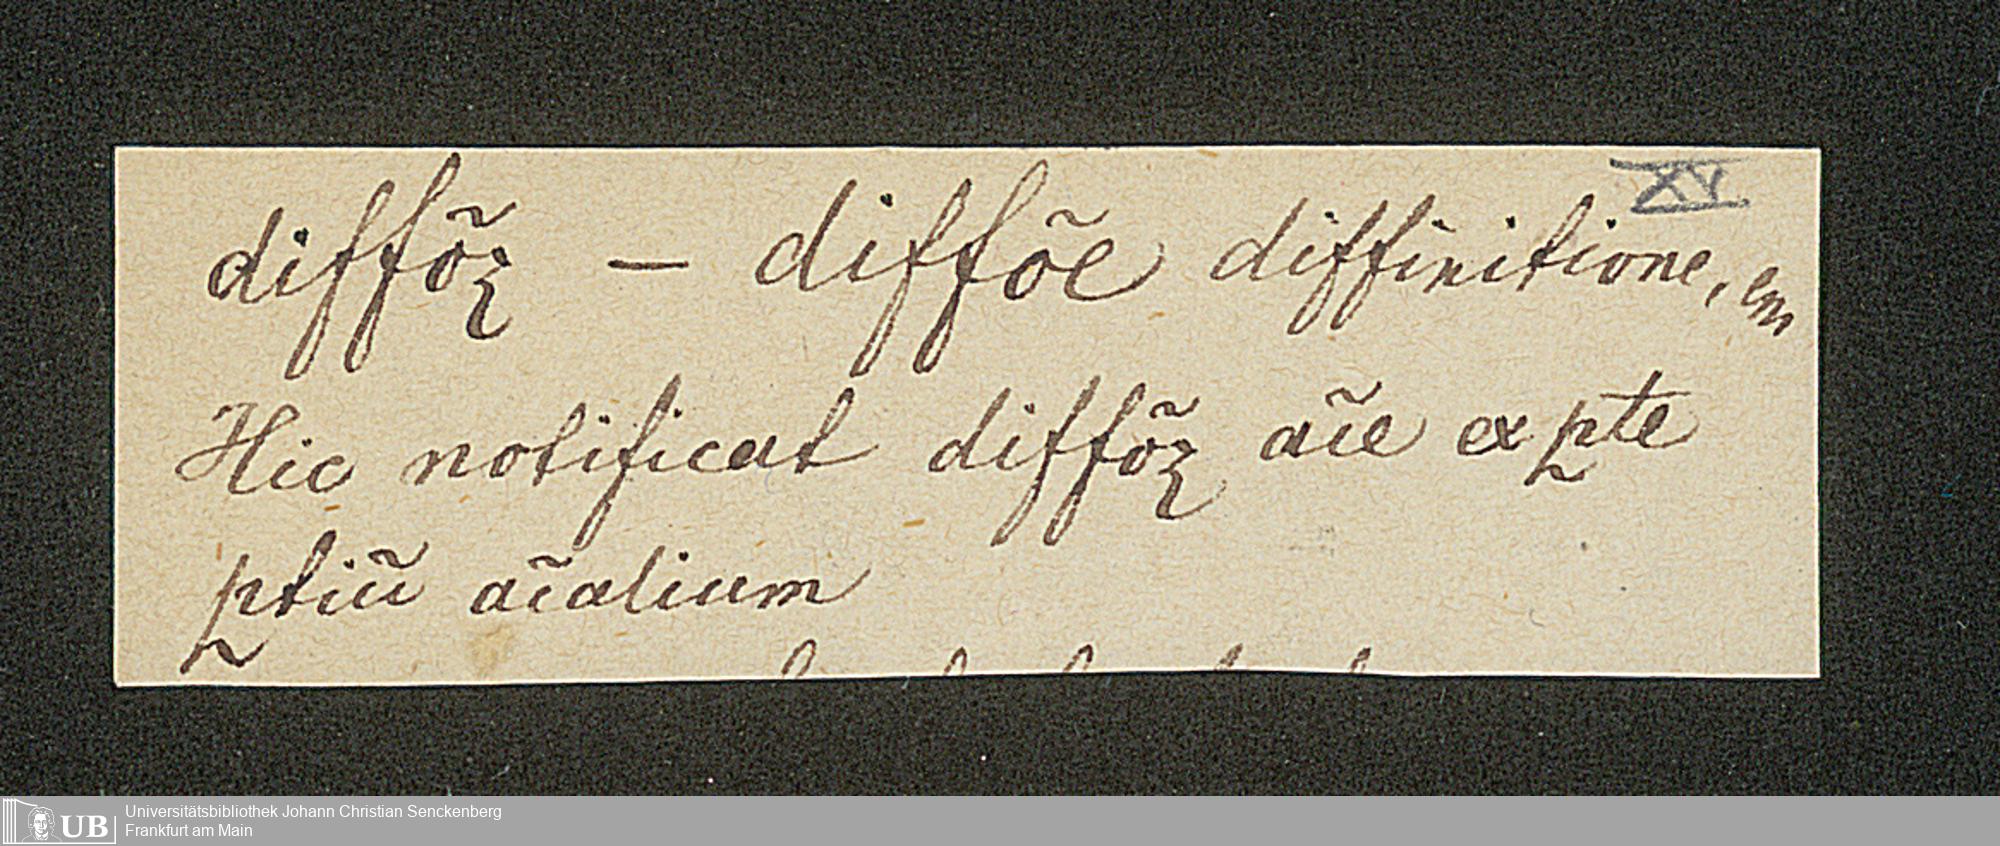 XV.
diffõꝫ – diffõe diffinitione, em
Hic notificat diffõꝫ aĩe ex ꝑte
ꝑtiũ aĩalium
UB
Universitätsbibliothek Johann Christian Senckenberg
Frankfurt am Main